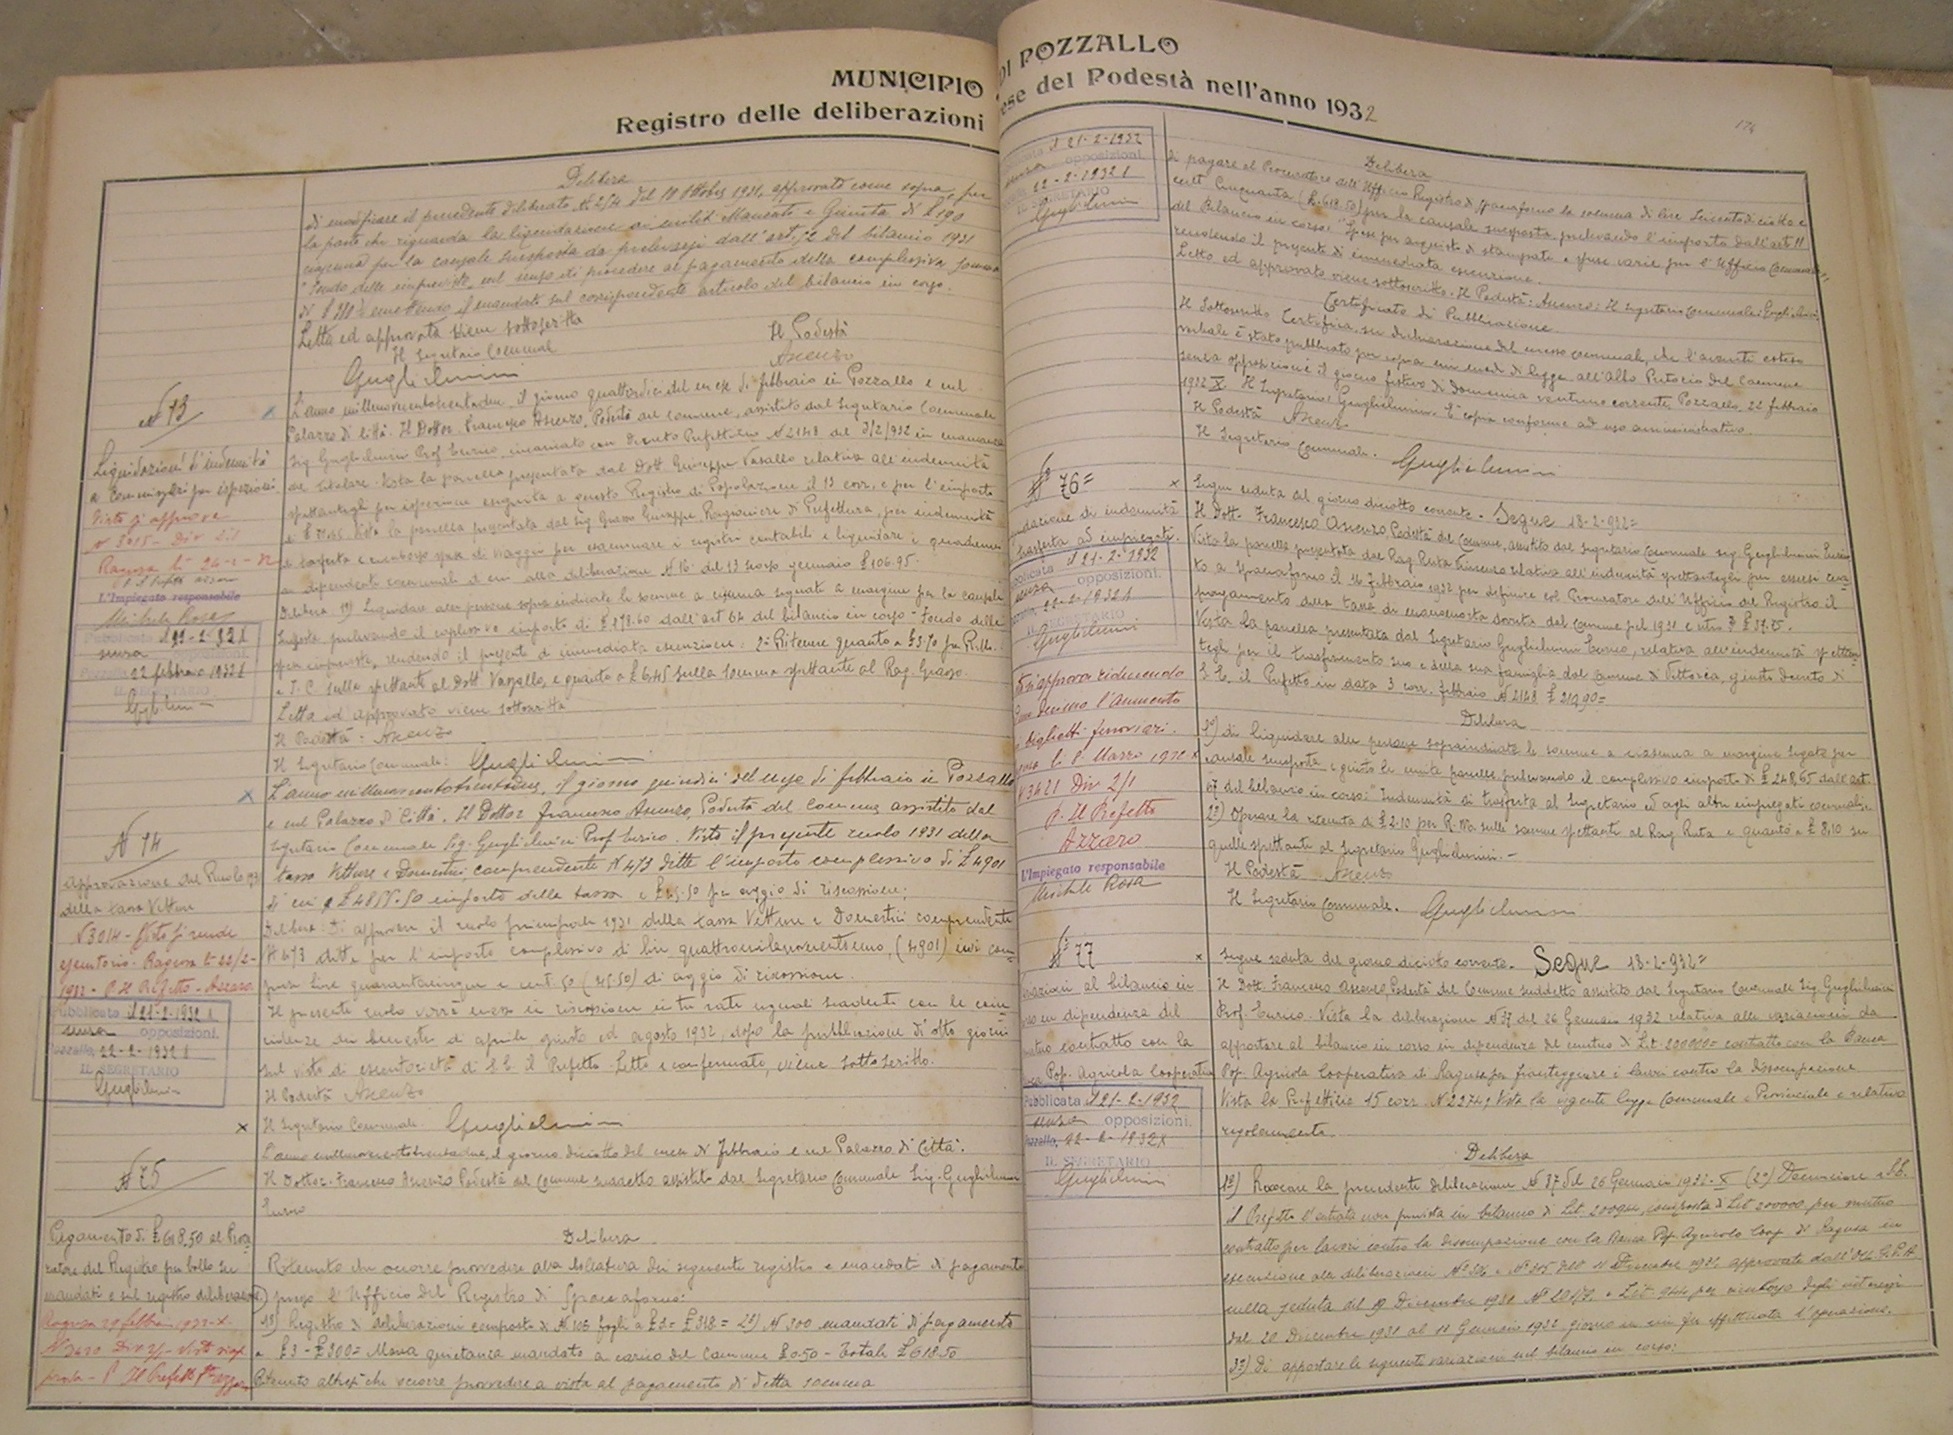 MUNICIPIO DI POZZALLO
Registro delle deliberazioni ese del Podestà nell'anno 1932
Delibera
di modificare il precedente deliberato N. 274 del 10 Ottobre 1931, approvato come sopra, per
la parte che riguarda la liquidazione di £ 190
per la causale suesposta da prelevarsi dall'art. 72 del bilancio 1931
Fondo delle impreviste di procedere al pagamento della complessiva somma
emettendo il mandato sul corrispondente articolo del bilancio in corso.
Letta ed approvata viene sottoscritta
Il Segretario Comunale Il Podestà
Guglielmini Ascenzo
N 73
Liquidazioni d'indennità
a Commissari per ispezioni
Visto si approva
N 3015 - Div
Ragusa li 24-2-32
L'Impiegato responsabile
Michele Rosa
Pubblicata il 21-2-1932
senza opposizioni
Pozzallo, 22 febbraio 1932
IL SEGRETARIO
Guglielmini
L'anno millenovecentotrentadue, il giorno quattordici del mese di febbraio in Pozzallo e nel
Palazzo di Città. Il Dottor Francesco Ascenzo, Podestà del Comune, assistito dal Segretario Comunale
Sig. Guglielmini Prof. Enrico, incaricato con Decreto Prefettizio N 2148 del 3/2/932 in mancanza
del titolare. Vista la parcella presentata dal Dott. Giuseppe Vasallo relativa all'indennità
spettantegli per ispezione eseguita a questo Registro di Popolazione il 13 corr. e per l'importo
Vista la parcella presentata dal Sig. Grasso Giuseppe, Ragioniere di Prefettura, per indennità
di trasferta e rimborso spese di viaggio per esaminare i registri contabili e liquidare i quaderni
ai dipendenti comunali di cui alla deliberazione N 16 del 13 scorso gennaio £ 106.95.
Delibera 1º) Liquidare alle persone sopra indicate le somme a ciascuna segnate a margine per la causale
suesposta prelevando il complessivo importo di £ 178.60 dall'art 64 del bilancio in corso: Fondo delle
spese impreviste, rendendo il presente di immediata esecuzione; 2º Ritenere quanto a £ 3.70 per R.M.
e T. C. sulla spettante al Dott Vasallo, e quanto a £ 6.45 sulla somma spettante al Rag. Grasso.
Letta ed approvata viene sottoscritta
Il Podestà: Ascenzo
Il Segretario Comunale: Guglielmini
N 74
Approvazione del Ruolo 1931
della tassa Vetture
N 3014 - Visto si rende
esecutorio - Ragusa li 22/2-
1932 - P. Il Prefetto - Azzaro
Pubblicata il 21-2-1932
senza opposizioni.
Pozzallo, 22-2-1932
IL SEGRETARIO
Guglielmini
L'anno millenovecentotrentadue, il giorno quindici del mese di febbraio in Pozzallo
e nel Palazzo di Città. Il Dottor Francesco Ascenzo, Podestà del Comune assistito dal
Segretario Comunale Sig. Guglielmini Prof. Enrico. Visto il presente ruolo 1931 della
tassa Vetture e Domestici comprendente N 473 ditte l'importo complessivo di £ 4901
di cui £ 4855.50 importo della tassa e £ 45.50 per aggio di riscossione;
Delibera: Di approvare il ruolo principale 1931 della tassa Vetture e Domestici comprendente
N 473 ditte per l'importo complessivo di lire quattromilanovecentouno, (4901) ivi com-
prese lire quarantacinque e cent. 50 (45.50) di aggio di riscossione.
Il presente ruolo verrà messo in riscossione in tre rate uguali scadenti con le sca-
denze dei bimestri di aprile, giugno ed agosto 1932, dopo la pubblicazione di otto giorni
sul visto di esecutorietà di S.E. il Prefetto. Letto e confermato, viene sottoscritto.
Il Podestà Ascenzo
Il Segretario Comunale Guglielmini
N 75
Pagamento di £ 618.50 al Procu-
ratore del Registro per bollo su
mandati e sul registro deliberazioni
Ragusa 29 febbraio 1932-X
N 3420 Div 2/1 - Visto si ap-
prova - P. Il Prefetto Azzaro
L'anno millenovecentotrentadue, il giorno diciotto del mese di febbraio e nel Palazzo di Città.
Il Dottor Francesco Ascenzo Podestà del Comune suddetto assistito dal Segretario Comunale Sig. Guglielmini
Enrico
Delibera
Ritenuto che occorre provvedere alla bollatura dei seguenti registri e mandati di pagamento
presso l'Ufficio del Registro di Spaccaforno:
1º) Registro di deliberazioni composto di N 106 fogli a £ 3 = £ 318 = 2º) N 300 mandati di pagamento
a £ 3 - £ 300 = Mezza quietanza mandato a carico del Comune £ 0.50 - Totale £ 618.50
Ritenuto altresì che occorre provvedere a vista al pagamento di detta somma
174
Pubblicata il 21-2-1932
senza opposizioni.
22-2-1932
IL SEGRETARIO
Guglielmini
Delibera
di pagare al Procuratore dell'Ufficio Registro di Spaccaforno la somma di lire Seicentodiciotto e
cent. Cinquanta (£. 618.50) per la causale suesposta, prelevando l'importo dall'art. 11
del Bilancio in corso: "Spese per acquisto di stampati e spese varie per l'Ufficio Comunale",
rendendo il presente di immediata esecuzione.
Letto ed approvato viene sottoscritto. Il Podestà: Ascenzo: Il Segretario Comunale: Guglielmini
Certificato di Pubblicazione
Il Sottoscritto Certifica, su dichiarazione del messo comunale, che l'avanti esteso
verbale è stato pubblicato per copia ai sensi di legge all'Albo Pretorio del Comune
senza opposizioni il giorno festivo di Domenica ventuno corrente. Pozzallo, 22 febbraio
1932 X. Il Segretario: Guglielmini. È copia conforme ad uso amministrativo.
Il Podestà Ascenzo
Il Segretario Comunale. Guglielmini
Nº 76=
dazione di indennità
trasferta ad impiegati.
Pubblicata il 21-2-1932
senza opposizioni.
22-2-1932
IL SEGRETARIO
Guglielmini
Si approva riducendo
decimo l'aumento
biglietti ferroviari.
li 1º Marzo 1932 X
N 3421 Div 2/1
P. Il Prefetto
Azzaro
L'Impiegato responsabile
Michele Rosa
Segue seduta del giorno diciotto corrente. Segue 18-2-932=
Il Dott. Francesco Ascenzo, Podestà del Comune, assistito dal Segretario Comunale Sig. Guglielmini Enrico
Vista la parcella presentata dal Rag. Ruta Vincenzo relativa all'indennità spettantegli per essersi reca-
to a Spaccaforno il 11 febbraio 1932 per definire col Procuratore dell'Ufficio del Registro il
pagamento della tassa di manomorta dovuta dal Comune pel 1931 £ 37.75.
Vista la parcella presentata dal Segretario Guglielmini Enrico, relativa all'indennità spettan-
tegli per il trasferimento suo e della sua famiglia dal Comune di Vittoria, giusto decreto di
S. E. il Prefetto in data 3 corr. febbraio N 2148 £ 210,90=
Delibera
1º) di liquidare alle persone sopraindicate le somme a ciascuna a margine segnate per
causale suesposta e giusta le unite parcelle, prelevando il complessivo importo di £ 248,65 dall'art.
67 del bilancio in corso: "Indennità di trasferta al Segretario ed agli altri impiegati comunali".
2º) Operare la ritenuta di £ 2.10 per R.M. sulle somme spettanti al Rag Ruta e quanto a £ 8,10 su
quelle spettante al Segretario Guglielmini. -
Il Podestà Ascenzo
Il Segretario Comunale. Guglielmini
Nº 77
variazioni al bilancio in
corso in dipendenza del
mutuo contratto con la
Banca Pop. Agricola Cooperativa
Pubblicata il 21-2-1932
senza opposizioni.
Pozzallo, 22-2-1932 X
IL SEGRETARIO
Guglielmini
Segue seduta del giorno diciotto corrente. Segue 18-2-932=
Il Dott. Francesco Ascenzo Podestà del Comune suddetto assistito dal Segretario Comunale Sig. Guglielmini
Prof. Enrico. Vista la deliberazione N 37 del 26 Gennaio 1932 relativa alle variazioni da
apportare al bilancio in corso in dipendenza del mutuo di Lit. 200000= contratto con la Banca
Pop. Agricola Cooperativa di Ragusa per fronteggiare i lavori contro la disoccupazione
Vista la Prefettizia 15 corr. N 2374; Vista la vigente legge Comunale e Provinciale e relativo
regolamento.
Delibera
1º) Revocare la precedente deliberazione N 37 del 26 Gennaio 1932-X (2º) Denunciare a S.E.
il Prefetto l'entrata non prevista in bilancio di Lit. 200944, composta di Lit 200000 per mutuo
contratto per lavori contro la disoccupazione con la Banca Pop Agricola Coop. di Ragusa in
esecuzione alle deliberazioni Dicembre 1931 approvate dall'On. G.P.A.
nella seduta del 19 Dicembre 1931 e Lit 944 per rimborso degli interessi
dal 20 Dicembre 1931 al 11 Gennaio 1932 giorno in cui fu effettuata l'operazione.
3º) Di apportare le seguenti variazioni nel bilancio in corso: